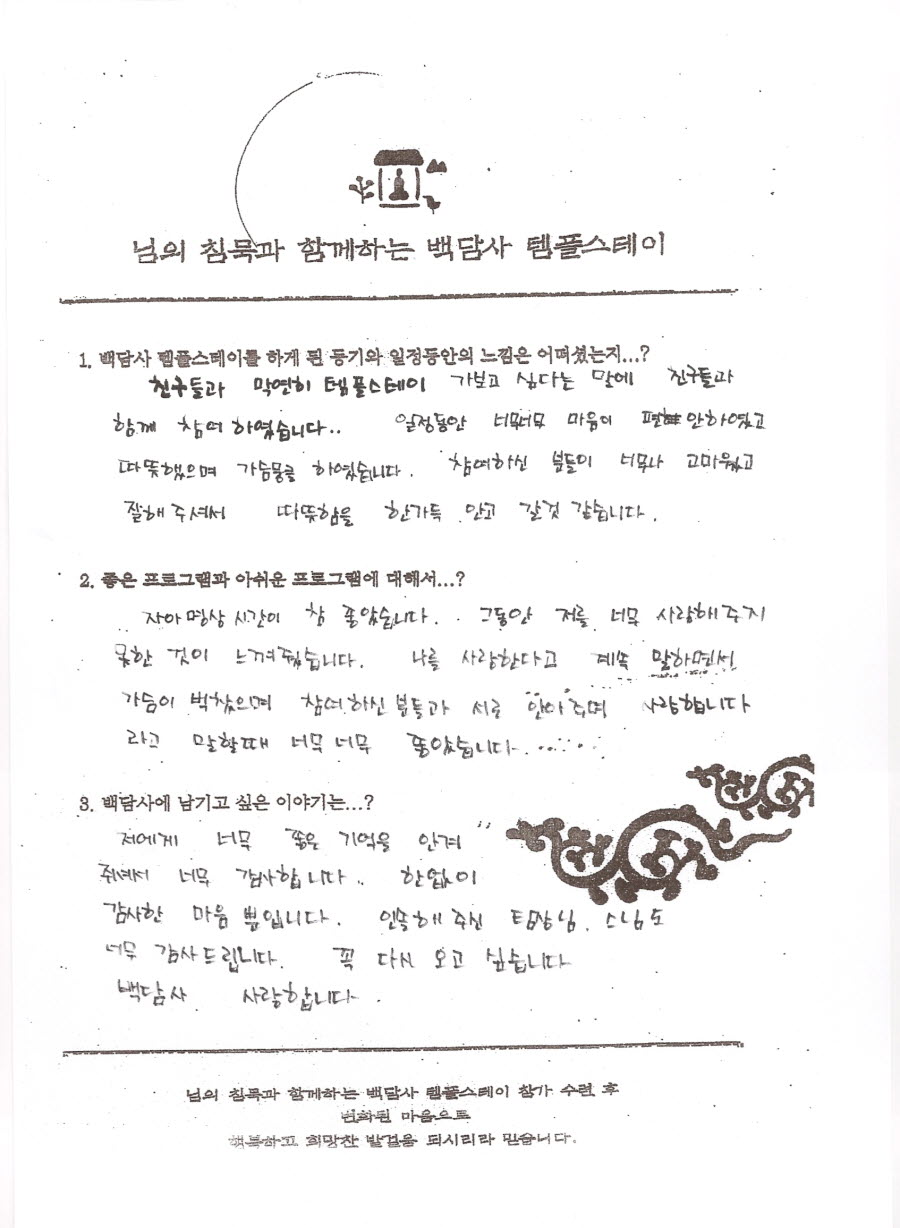 님의 침묵과 함께하는 백담사 템플스테이
1. 백담사 템플스테이를 하게 된 동기와 일정동안의 느낌은 어떠셨는지...?
친구들과 막연히 템플스테이 가보고 싶다는 말에 친구들과
함께 참여 하였습니다.. 일정동안 너무너무 마음이 편안하였고
따뜻했으며 가슴뭉클 하였습니다. 참여하신 분들이 너무나 고마웠고
잘해 주셔서 따뜻함을 한가득 안고 갈것 같습니다.
2. 좋은 프로그램과 아쉬운 프로그램에 대해서...?
자아 명상 시간이 참 좋았습니다.. 그동안 저를 너무 사랑해 주지
못한 것이 느껴졌습니다. 나를 사랑한다고 계속 말하면서
가슴이 벅찼으며 참여하신 분들과 서로 "안아"주며 사랑합니다
라고 말할때 너무 너무 좋았습니다......
3. 백담사에 남기고 싶은 이야기는...?
저에게 너무 좋은 기억을 안겨
주셔서 너무 감사합니다.. 한없이
감사한 마음 뿐입니다. 인솔해 주신 팀장님, 스님도
너무 감사드립니다. 꼭 다시 오고 싶습니다
백담사 사랑합니다.
님의 침묵과 함께하는 백담사 템플스테이 참가 수련 후
변화된 마음으로
행복하고 희망찬 발걸음 되시리라 믿습니다.